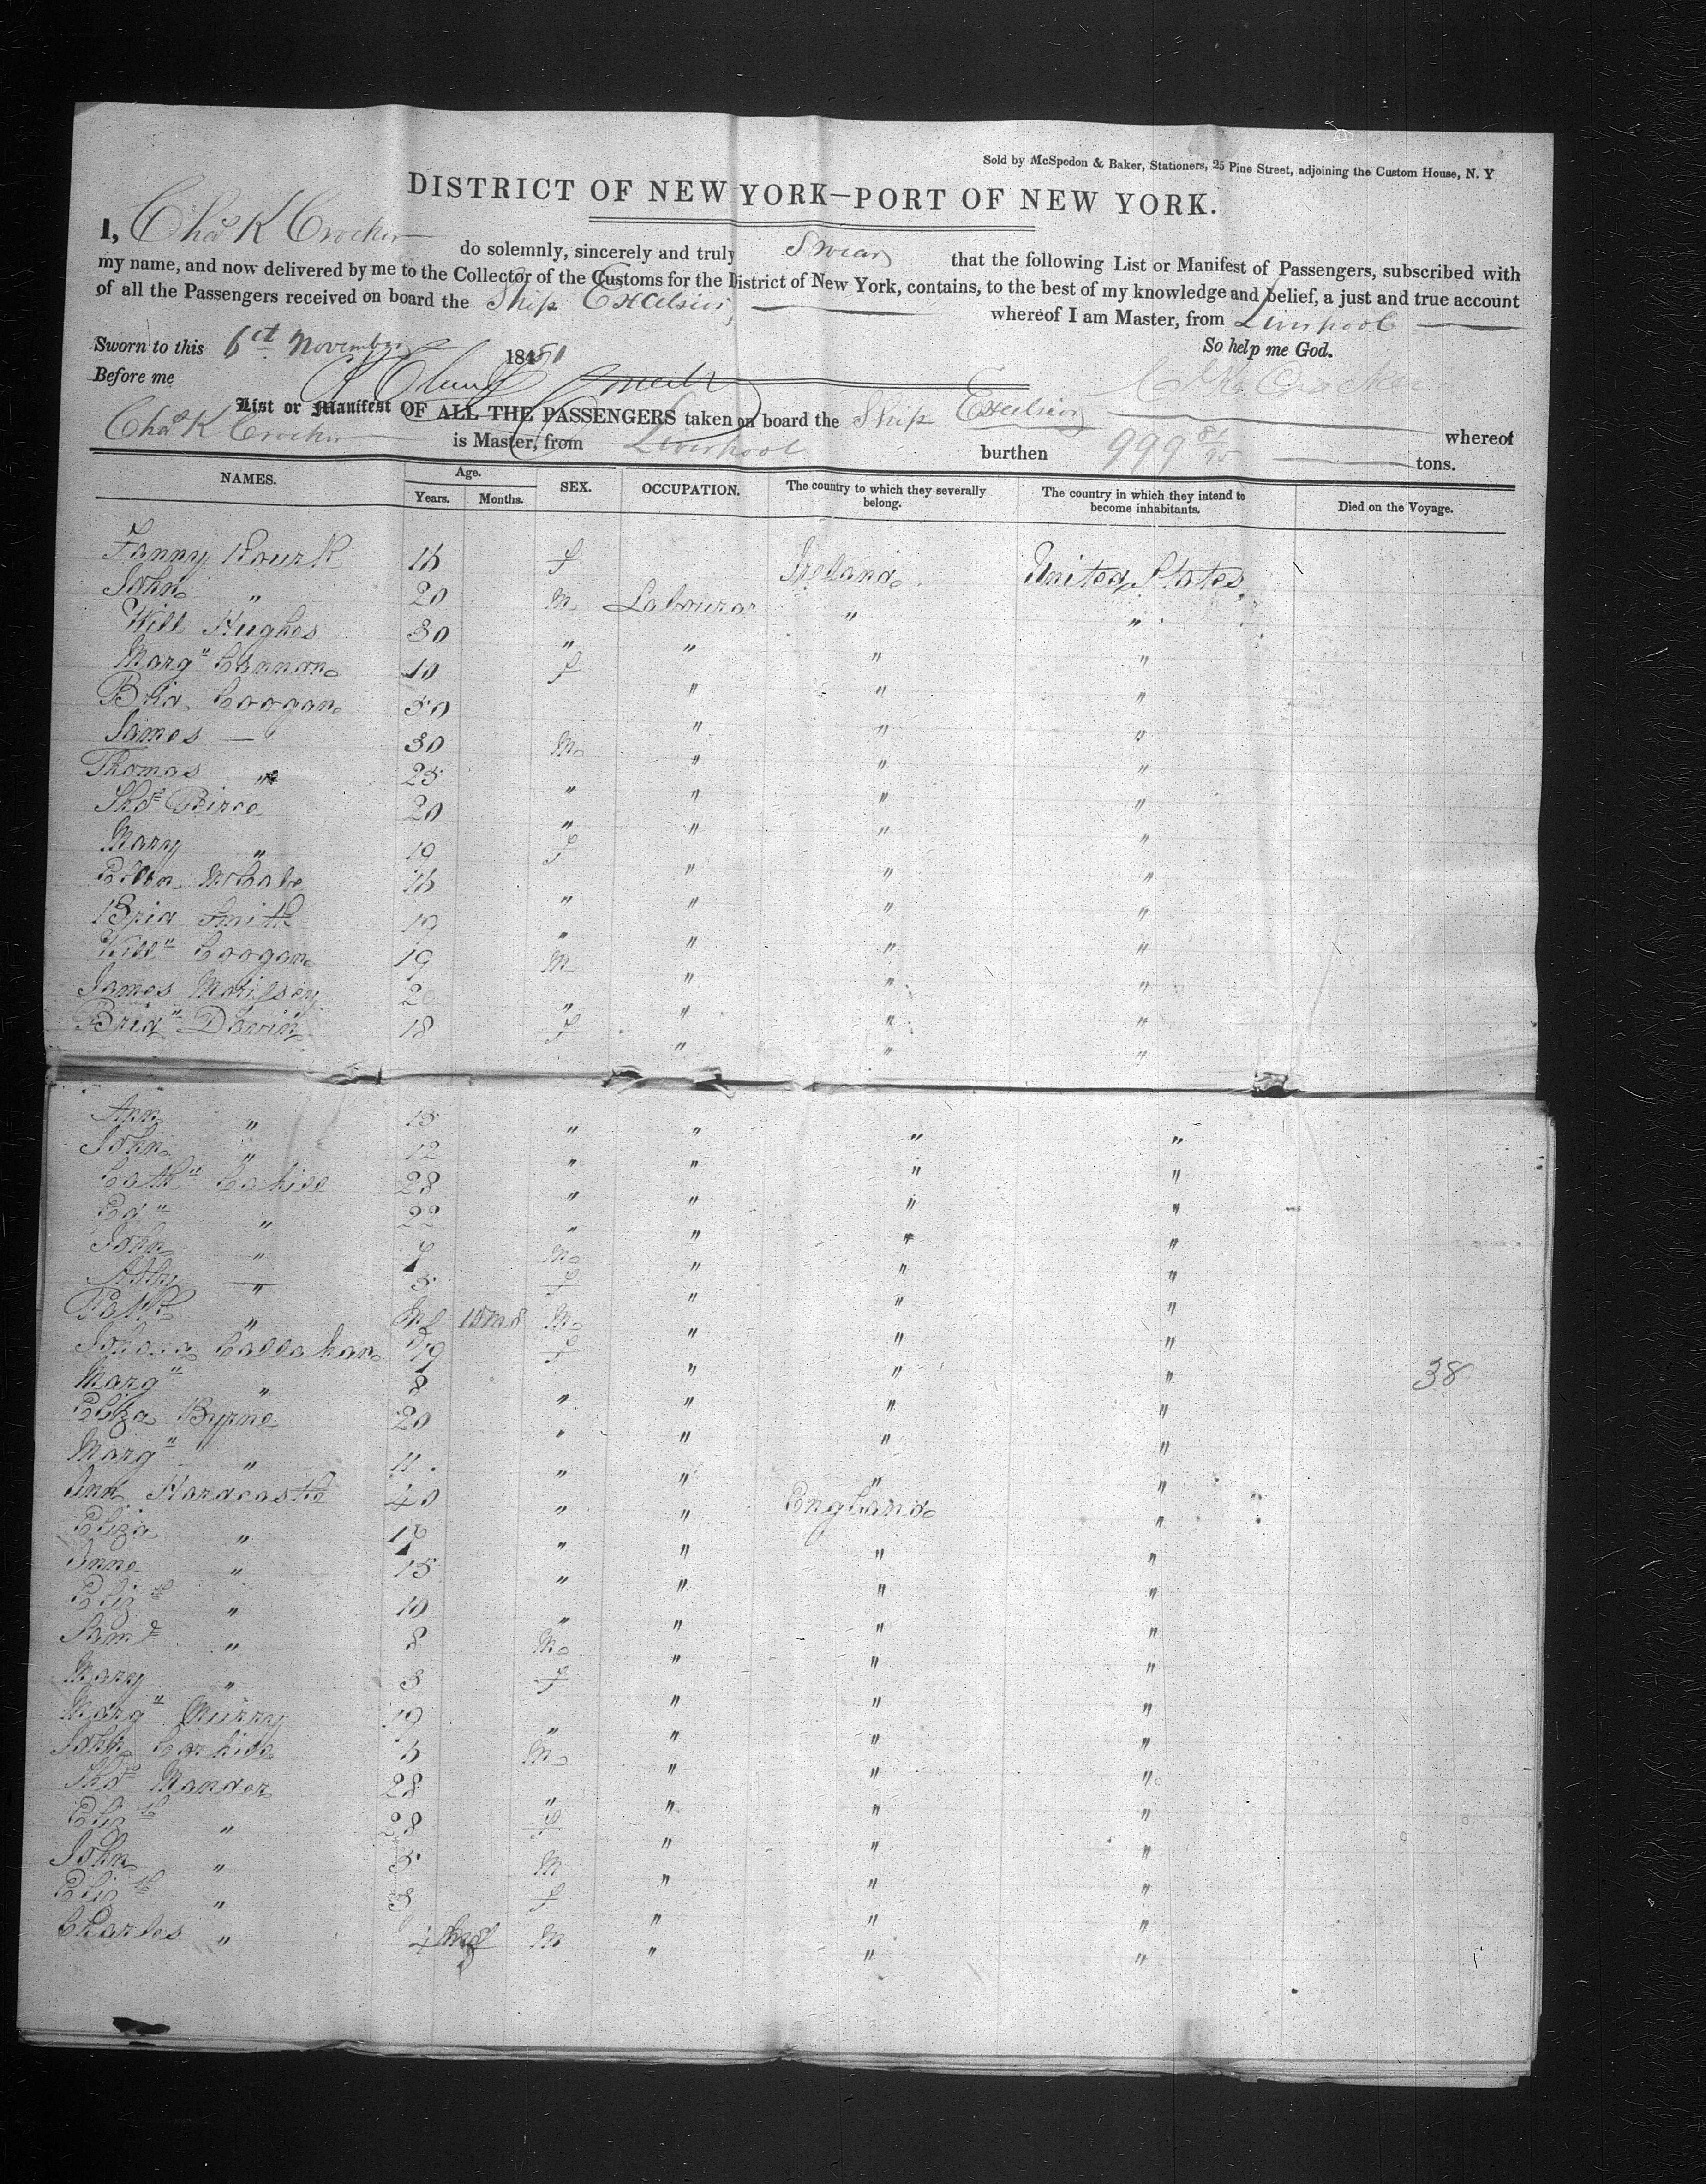 Sold by McSpedon & Baker, Stationers, 25 Pine Street, adjoining the Custom House, N. Y
DISTRICT OF NEW YORK—PORT OF NEW YORK.
I, Chas K Crocker do solemnly, sincerely and truly Swear that the following List or Manifest of Passengers, subscribed with
my name, and now delivered by me to the Collector of the Customs for the District of New York, contains, to the best of my knowledge and belief, a just and true account
of all the Passengers received on board the Ship Excelsior, whereof I am Master, from Liverpool
Sworn to this 6 November 184 So help me God.
Before me
List or Manifest OF ALL THE PASSENGERS taken on board the Ship Excelsior whereof
Chas K Crocker is Master, from Liverpool burthen 999 tons.
NAMES. Age. Years. Months. SEX. OCCUPATION. The country to which they severally belong. The country in which they intend to become inhabitants. Died on the Voyage.
Fanny Rourk 16 f Ireland United States
John " 20 m Labourer " "
Will Hughes 30 " " " "
Marg" Cannon 10 f " " "
Brid Coogan 50 " " "
James — 30 m " " "
Thomas " 25 " " " "
Thos Peirce 20 " " " "
Mary " 19 f " " "
Ellen McCabe 16 " " " "
Brid Smith 19 " " " "
Will" Coogan 19 m " " "
James 20 " " " "
Brid" 18 f " " "
Ann " 15 " " " "
John " 12 " " " "
Cath" Cahill 28 " " " "
Ed" " 22 " " " "
John " 7 m " " "
" 5 f " " "
Patk " Inf 15 ms m " " "
Johona Callahan 19 f " " "
Marg" " 8 " " " " 38
Eliza Byrne 20 " " " "
Marg" " 11 " " " "
Ann Hardcastle 40 " " England "
Eliza " 17 " " " "
Anne " 15 " " " "
Elizth " 10 " " " "
Saml " 8 m " " "
Mary " 3 f " " "
Marg" Murry 19 " " " "
John 6 m " " "
Thos Mander 28 " " " "
Elizth " 28 f " " "
John " 5 m " " "
Elizth " 3 f " " "
Charles " 4 m " " "